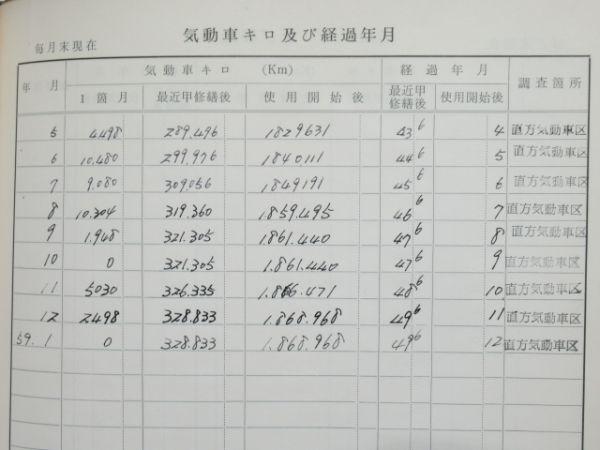 気動車キロ及び経過年月
毎月末現在
年 月 気動車キロ (Km) 経過年月 調査箇所
1箇月 最近甲修繕後 使用開始後 最近甲修繕後 使用開始後
5 4.498 289.496 1829631 43 6 4 直方気動車区
6 10.480 299.976 1840111 44 6 5 直方気動車区
7 9.080 309.056 1849191 45 6 6 直方気動車区
8 10.304 319.360 1.859.495 46 6 7 直方気動車区
9 1.948 321.305 1.861.440 47 6 8 直方気動車区
10 0 321.305 1.861.440 47 6 9 直方気動車区
11 5030 326.335 1.866.471 48 6 10 直方気動車区
12 2498 328.833 1.868.968 49 6 11 直方気動車区
59. 1 0 328.833 1.868.968 49 6 12 直方気動車区